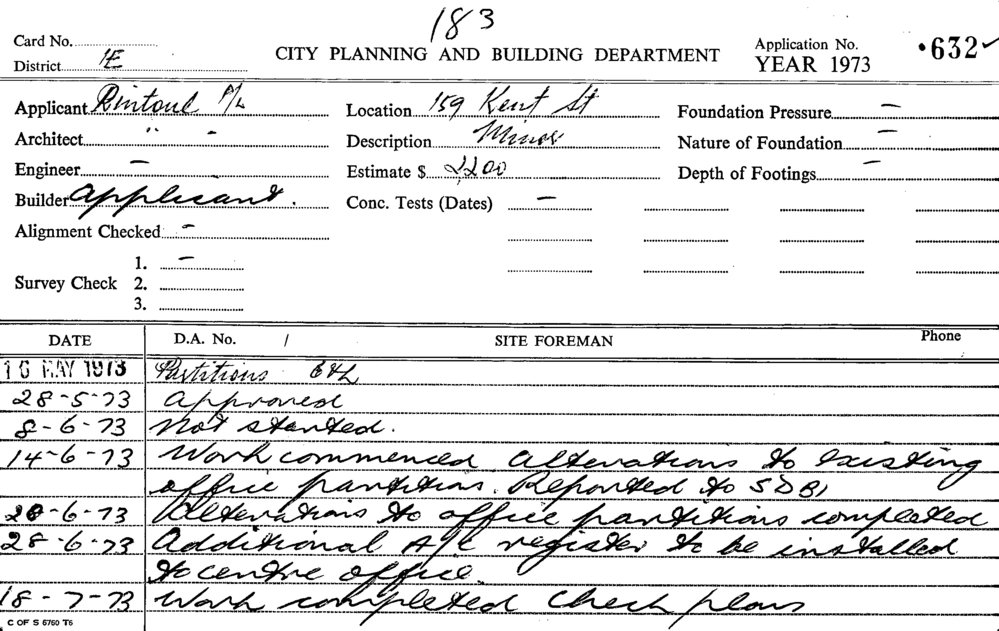 183
Card No.
CITY PLANNING AND BUILDING DEPARTMENT
Application No. 632
District 1E
YEAR 1973
Applicant Rintoul P/L
Location 159 Kent St
Foundation Pressure -
Architect " -
Description Minor
Nature of Foundation -
Engineer -
Estimate $ 2200
Depth of Footings -
Builder Applicant.
Conc. Tests (Dates) -
Alignment Checked -
Survey Check 1. -
2.
3.
DATE D.A. No. / SITE FOREMAN Phone
16 MAY 1973 Partitions
28-5-73 Approved
8-6-73 Not started.
14-6-73 Work commenced Alterations to existing
office partition. Reported to SDBI
20-6-73 Alterations to office partitions completed
28-6-73 Additional A/C register to be installed
to centre office.
18-7-73 Work completed Check plans
C OF S 6760 T6